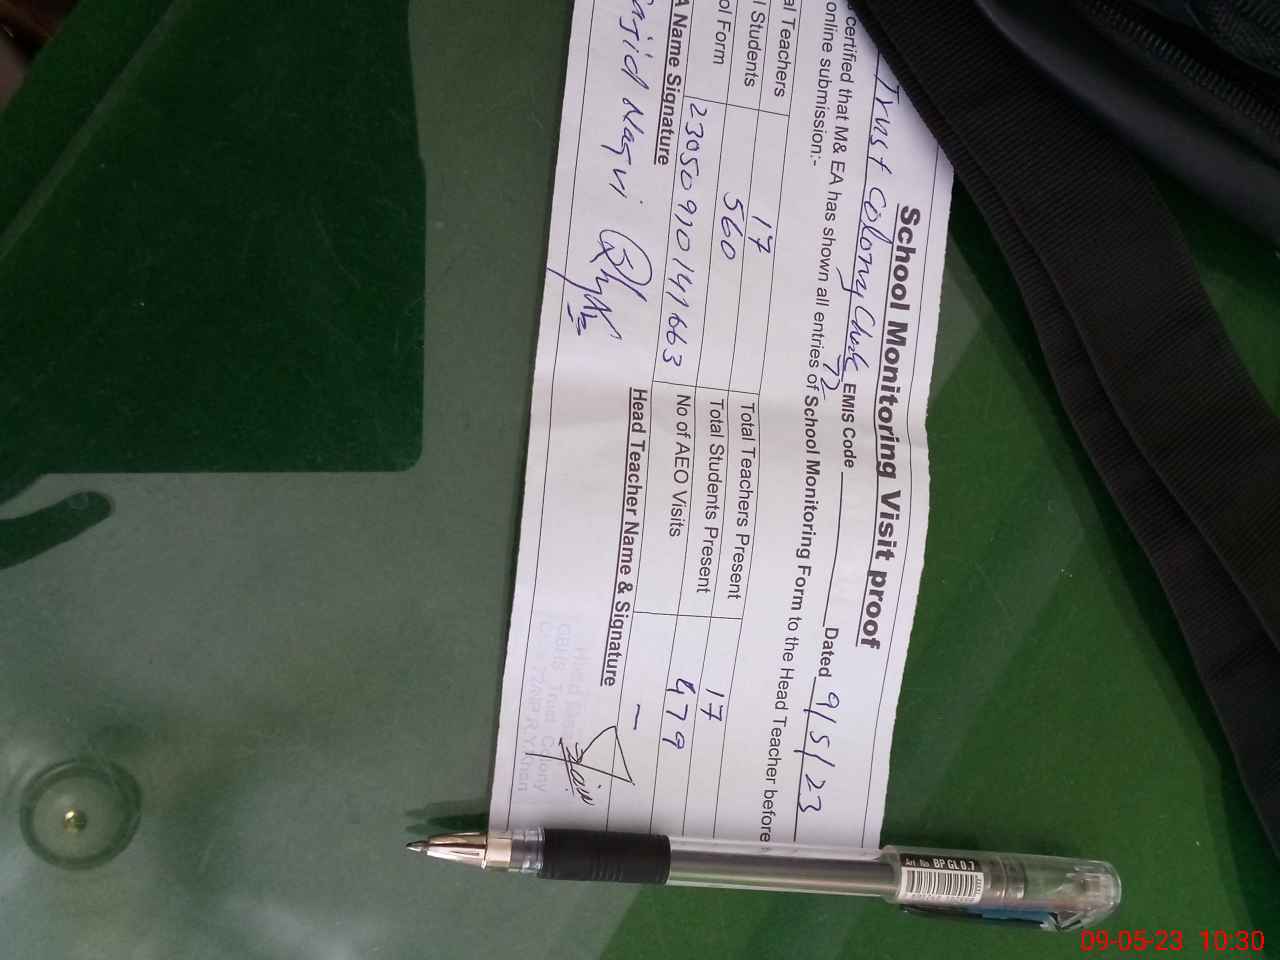 School Monitoring Visit proof
Trust Colony Chak 72 EMIS Code Dated 9/5/23
certified that M& EA has shown all entries of School Monitoring Form to the Head Teacher before
online submission:-
al Teachers 17 Total Teachers Present 17
l Students 560 Total Students Present 479
ol Form 23050930141663 No of AEO Visits —
A Name Signature Head Teacher Name & Signature
Naqvi
Trust Colony
R.Y.Khan
Art. No. BP GL 0.7
09-05-23 10:30